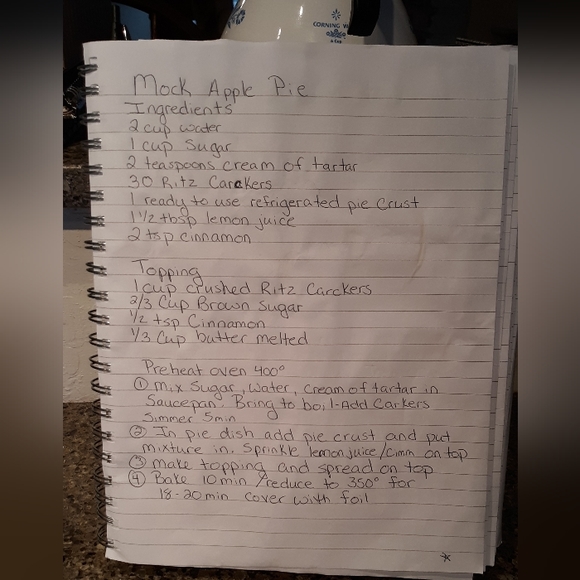 CORNING W
Mock Apple Pie
Ingredients
2 cup water
1 cup Sugar
2 teaspoons cream of tartar
30 Ritz Carckers
1 ready to use refrigerated pie Crust
1 1/2 tbsp lemon juice
2 tsp cinnamon
Topping
1 cup crushed Ritz Carckers
2/3 Cup Brown Sugar
1/2 tsp Cinnamon
1/3 Cup butter melted
Preheat oven 400°
① mix Sugar, water, Cream of tartar in
Saucepan. Bring to boil-Add Carkers
Simmer 5min
② In pie dish add pie crust and put
mixture in. Sprinkle lemon juice/cinn on top
③ make topping and spread on top
④ Bake 10min /reduce to 350° for
18-20min cover with foil
*